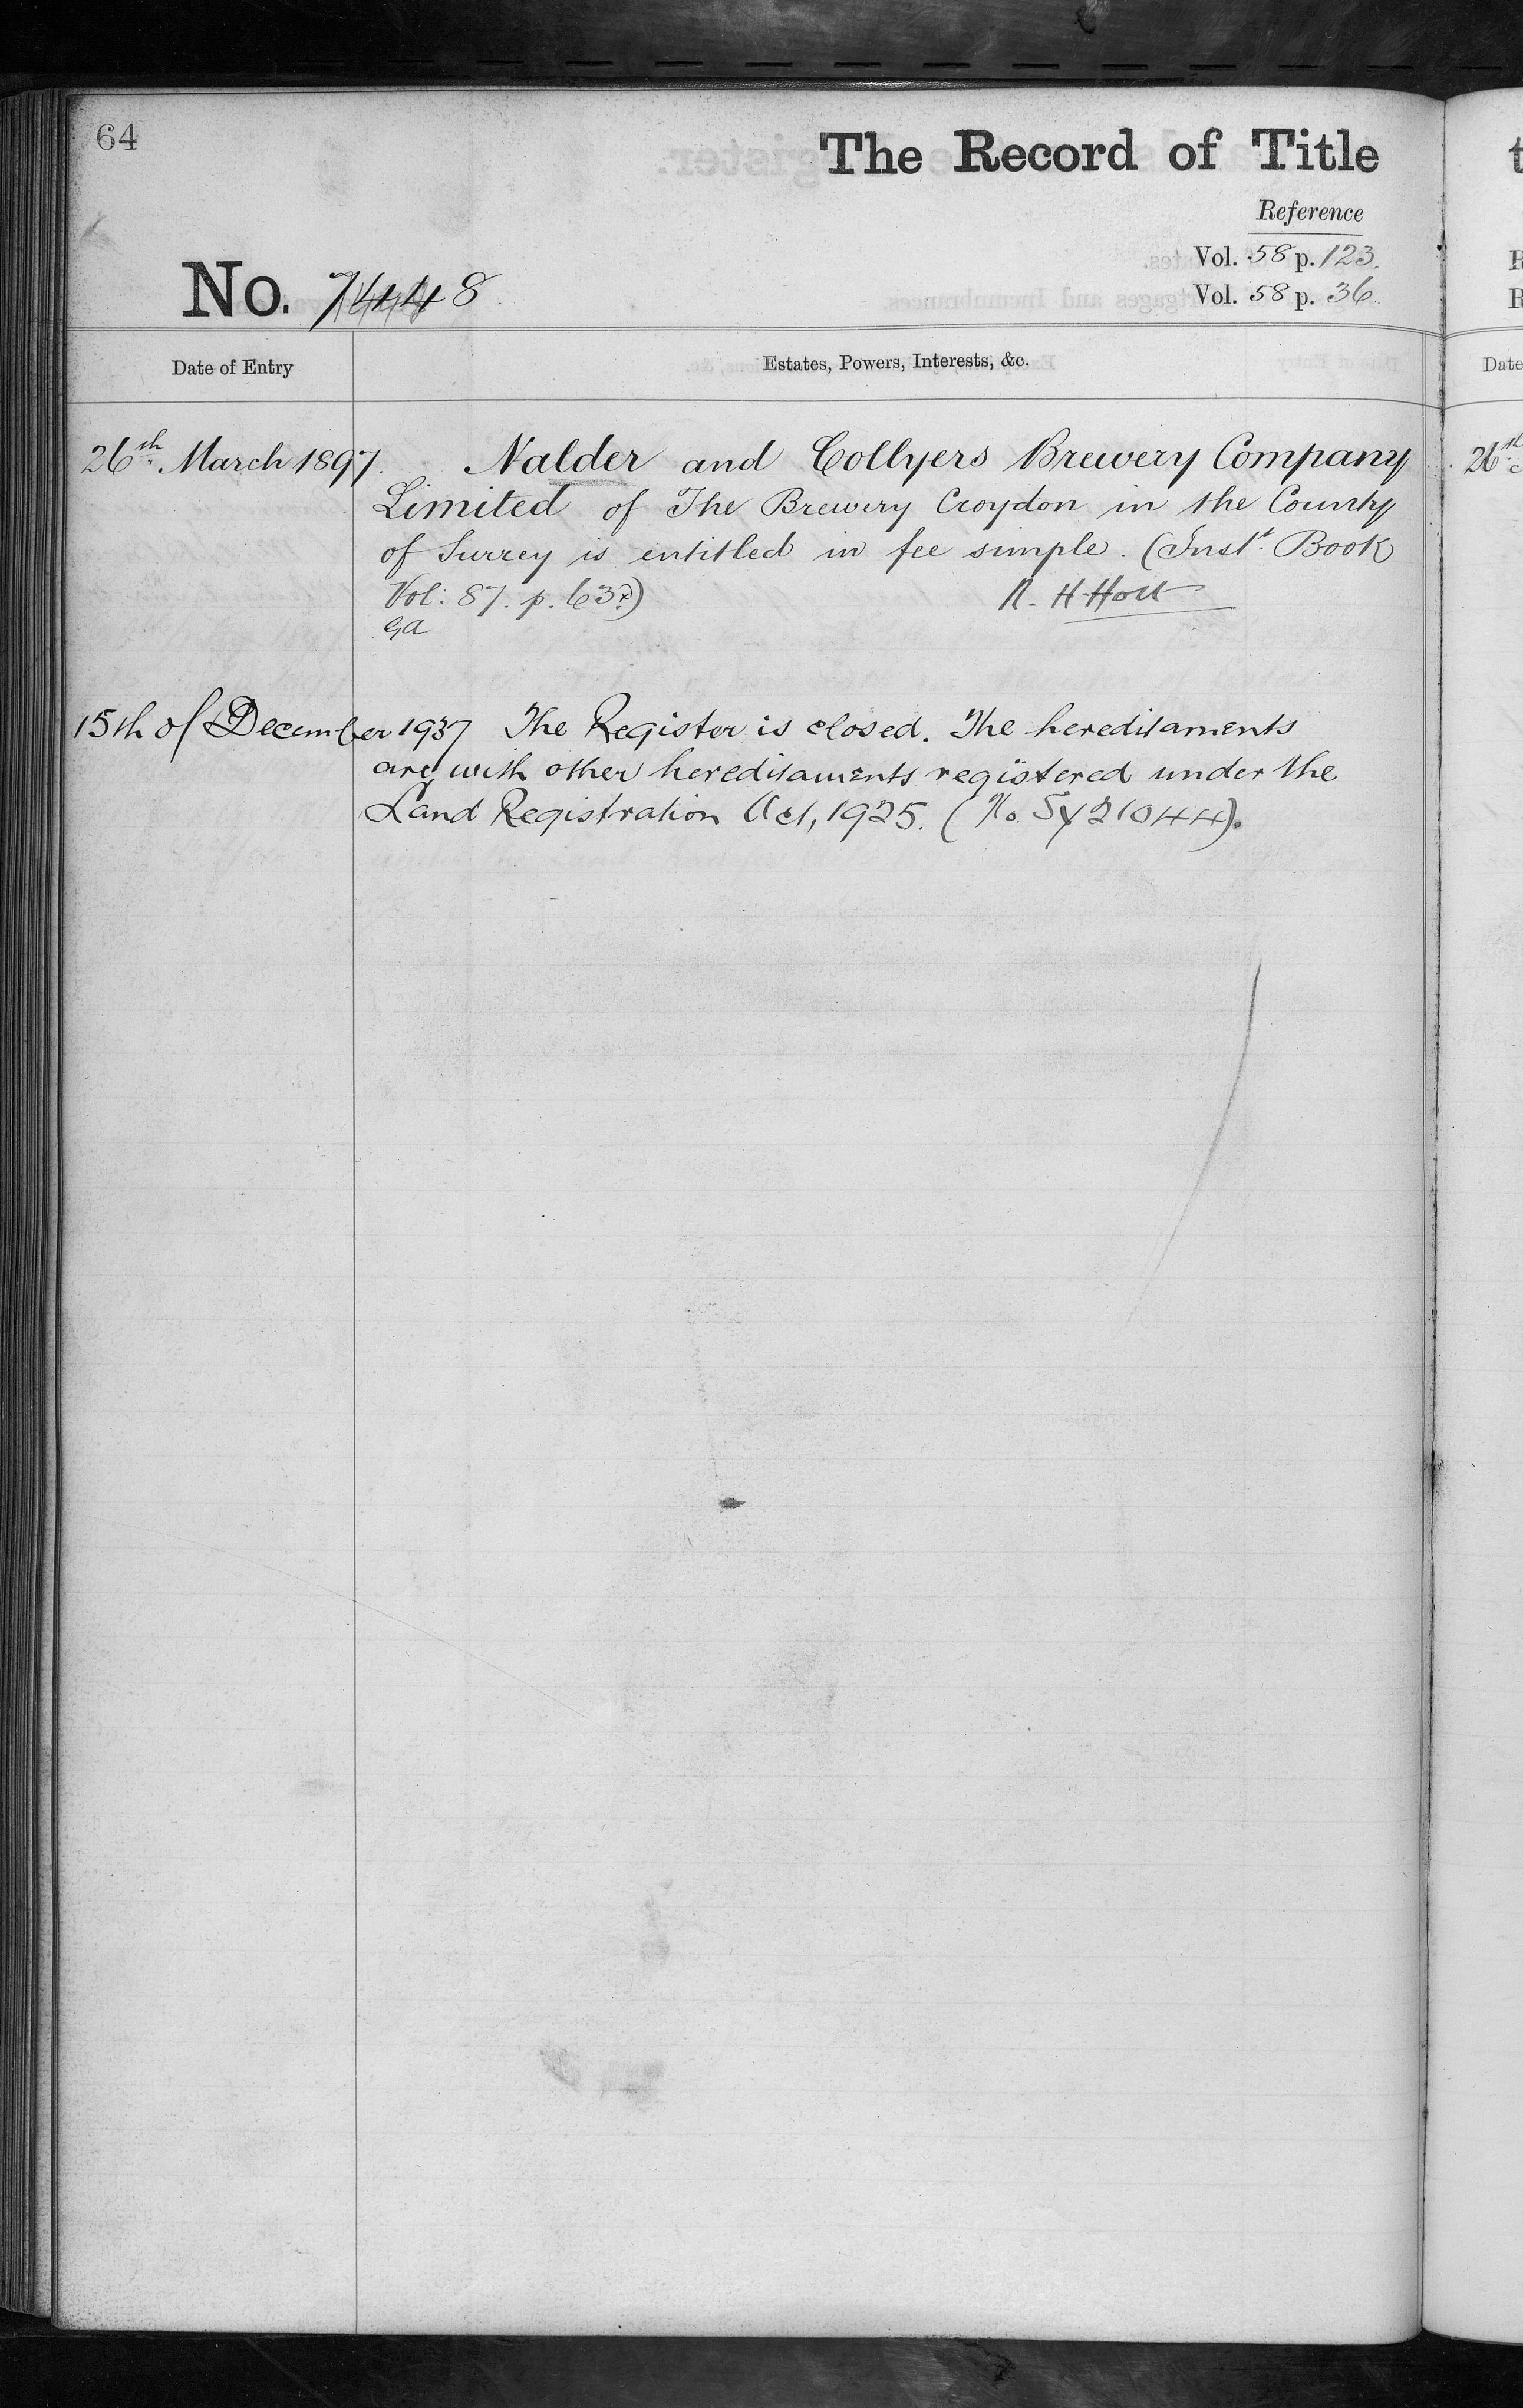 64
The Record of Title
Reference
Vol. 58 p. 123.
No. 74448.
Vol. 58 p. 36.
Date of Entry
Estates, Powers, Interests, &c.
26th March 1897. Nalder and Collyers Brewery Company
Limited of The Brewery Croydon in the County
of Surrey is entitled in fee simple. (Inst. Book
Vol: 87. p. 63.) R. H. Holt
15th of December 1937 The Register is closed. The hereditaments
are with other hereditaments registered under the
Land Registration Act, 1925. (No. SY21044).
Date
26th